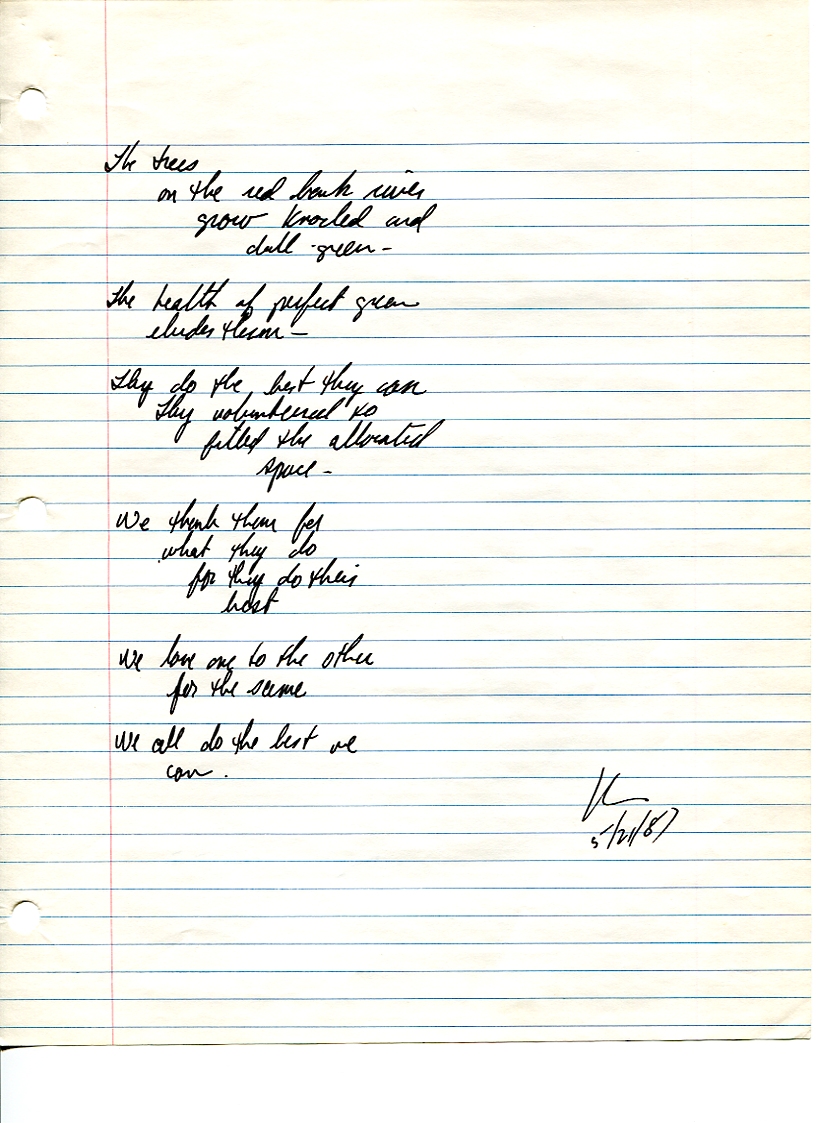 The trees
on the red bank river
grow knarled and
dull green -
The health of perfect green
eludes them -
They do the best they can
They volunteered to
filled the allocated
space -
We thank them for
what they do
for they do their
best
We love one to the other
for the same
We all do the best we
can.
5/21/87